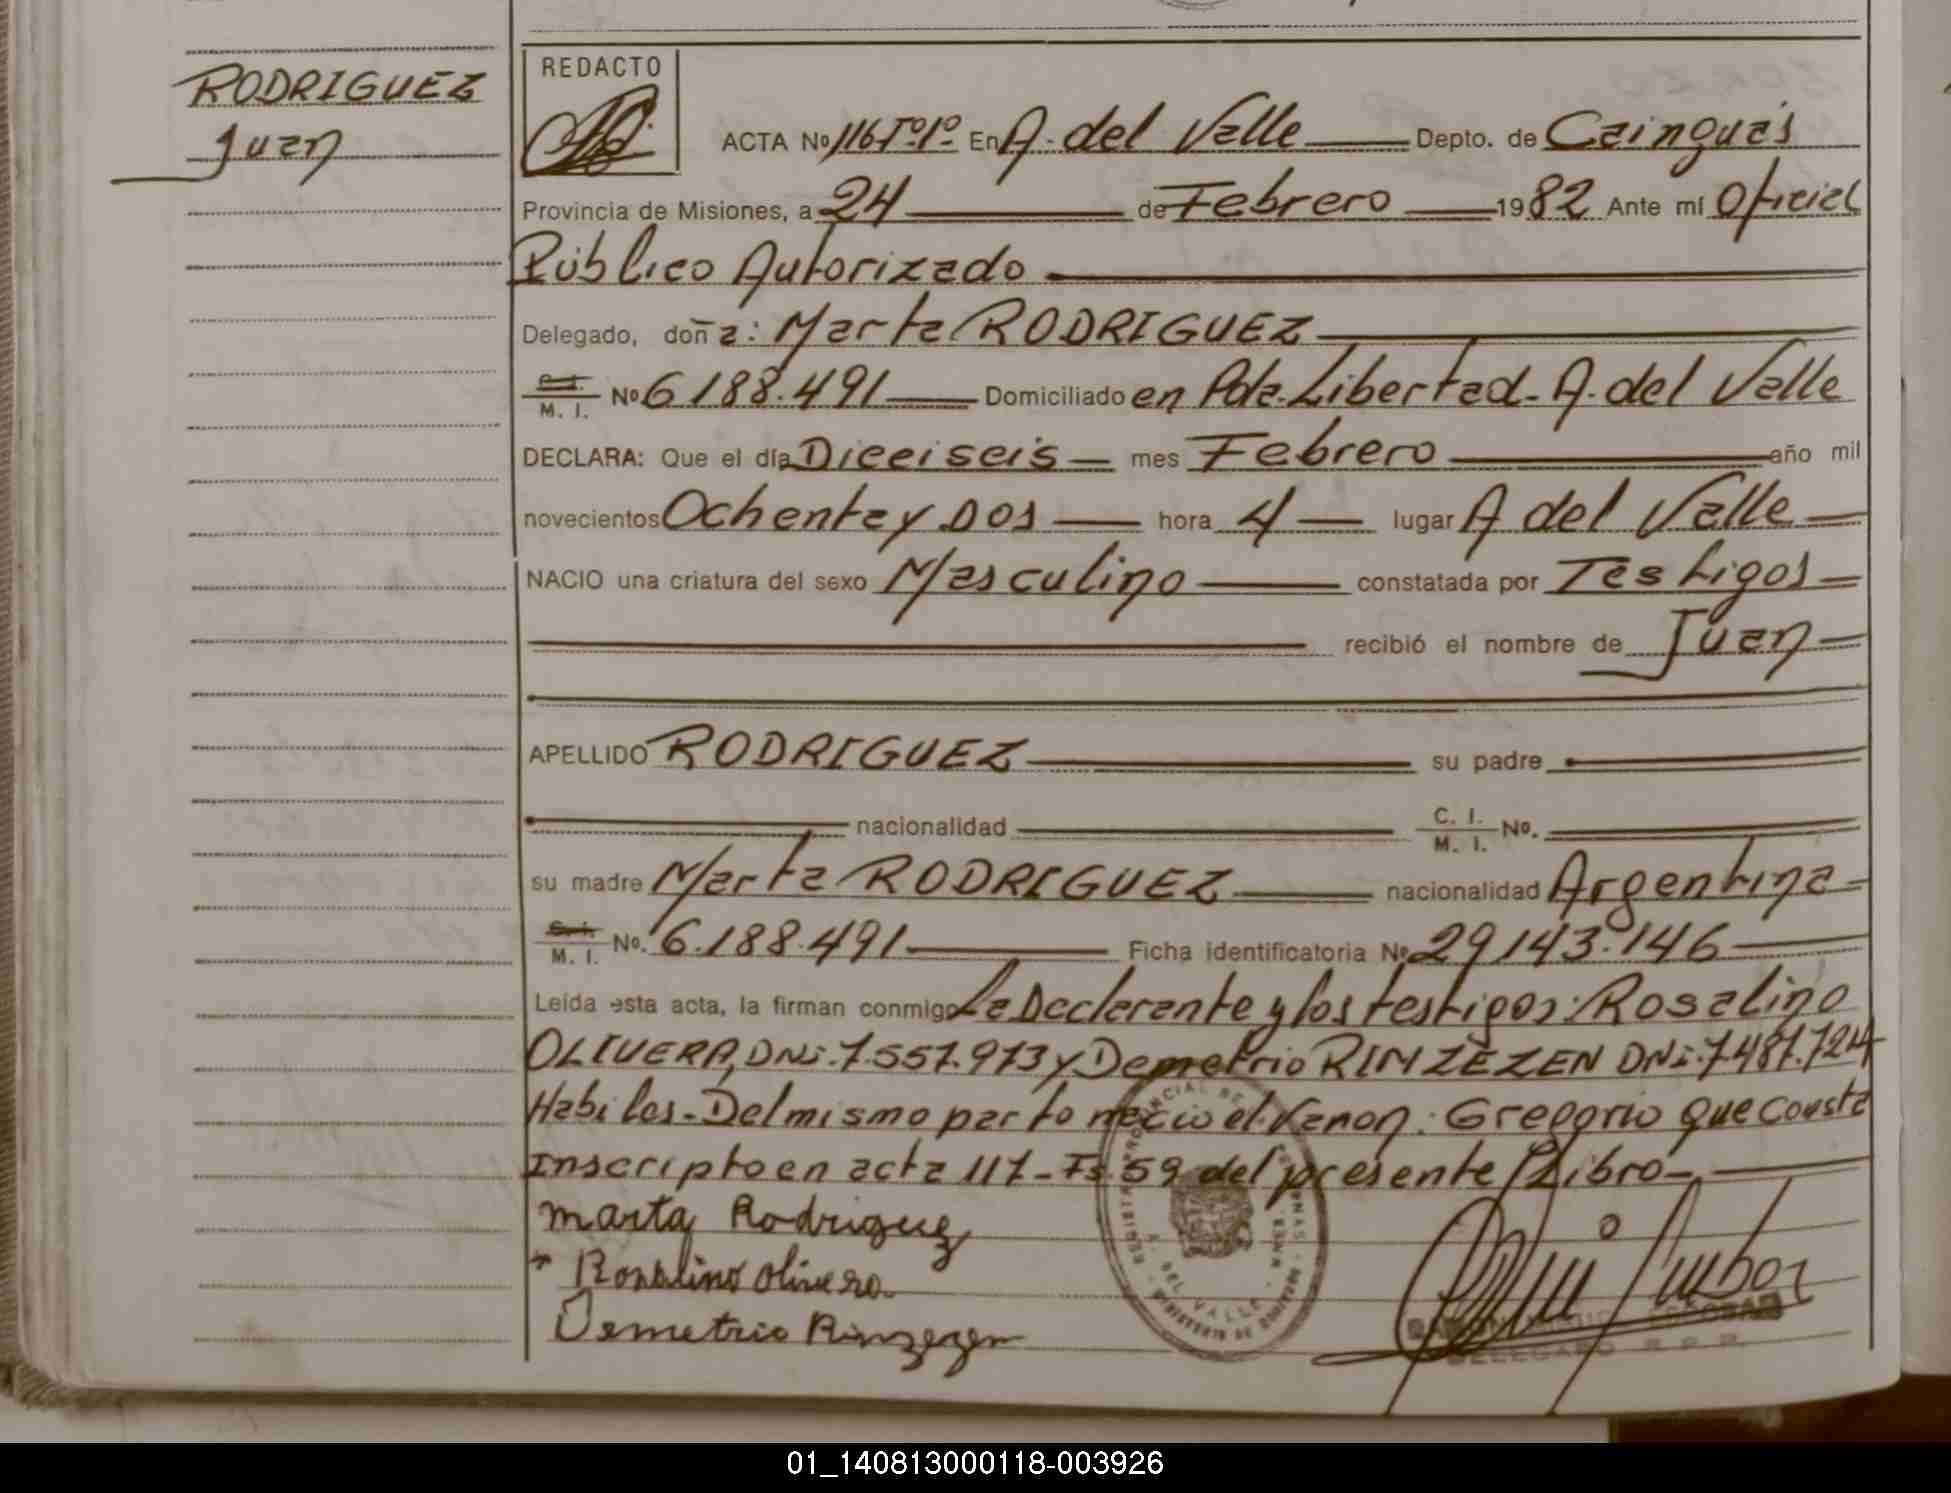 RODRIGUEZ
Juan
REDACTO
ACTA Nº 116 Tº 1º En A. del Valle Depto. de Cainguás
Provincia de Misiones, a 24 de Febrero 1982 Ante mí Oficial
Público Autorizado
Delegado, doña: Marta RODRIGUEZ
C. I. M. I. Nº 6188.491 Domiciliado en Pda. Libertad - A. del Valle
DECLARA: Que el día Dieciseis mes Febrero año mil
novecientos Ochenta y Dos hora 4 lugar A del Valle
NACIO una criatura del sexo Masculino constatada por Testigos
recibió el nombre de Juan
APELLIDO RODRIGUEZ su padre
nacionalidad C. I. M. I. Nº.
su madre Marta RODRIGUEZ nacionalidad Argentina
C. I. M. I. Nº. 6.188.491 Ficha identificatoria Nº 29143.146
Leída esta acta, la firman conmigo La Declarante y los testigos: Rosalino
OLIVERA, DNi. 7.557.973 y Demetrio RINZEZEN DNi. 7.487.724
Habiles - Del mismo parto nacio el Varon: Gregorio que Consta
Inscripto en acta 117 - Fs. 59 del presente Libro -
Marta Rodriguez
Rosalino Olivera
Demetrio Rinzezen
A. DEL VALLE
DELEGADO R. P. P.
01_140813000118-003926